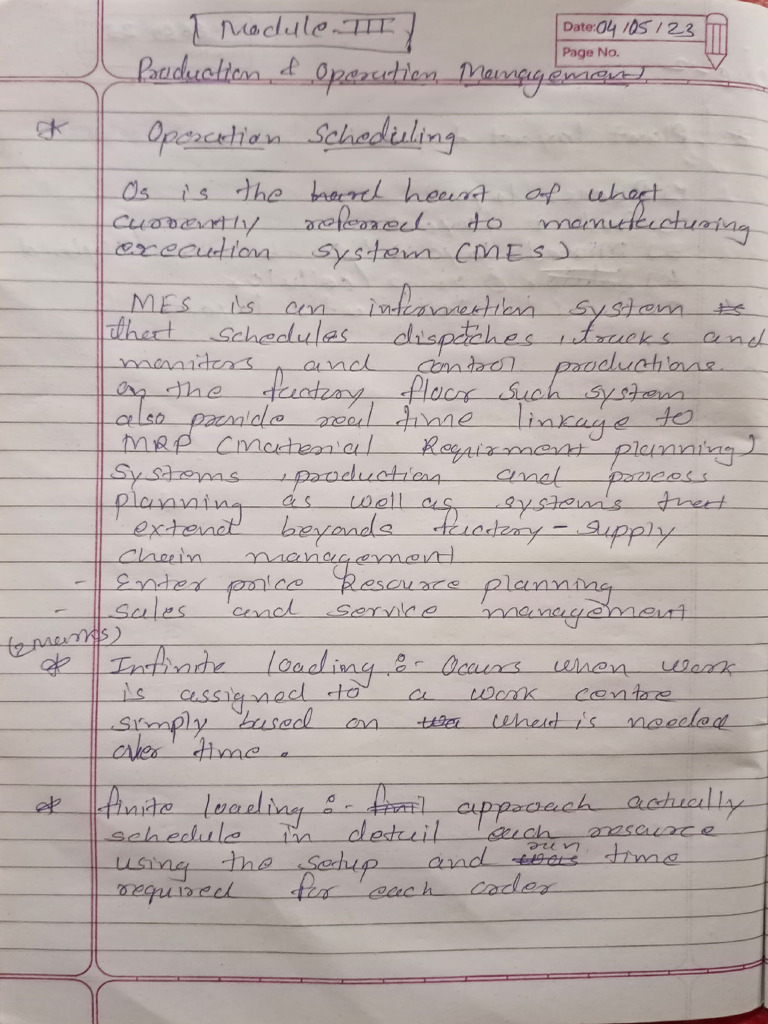 Module-III
Date: 04/05/23
Page No.
Production & Operation Management
* Operation Scheduling
Os is the heart of what
currently referred to manufacturing
execution system (MES)
MES is an information system
that schedules dispatches, tracks and
monitors, and control productions
on the factory floor such system
also provide real time linkage to
MRP (Material Requirment planning)
systems, production and process
planning as well as systems that
extend beyonds factory - supply
chain management
- Enter price Resource planning
- sales and service management
(2 marks)
* Infinite loading :- Occurs when work
is assigned to a work centre
simply based on what is needed
over time.
* finite loading :- approach actually
schedule in detail each resource
using the setup and run time
required for each order